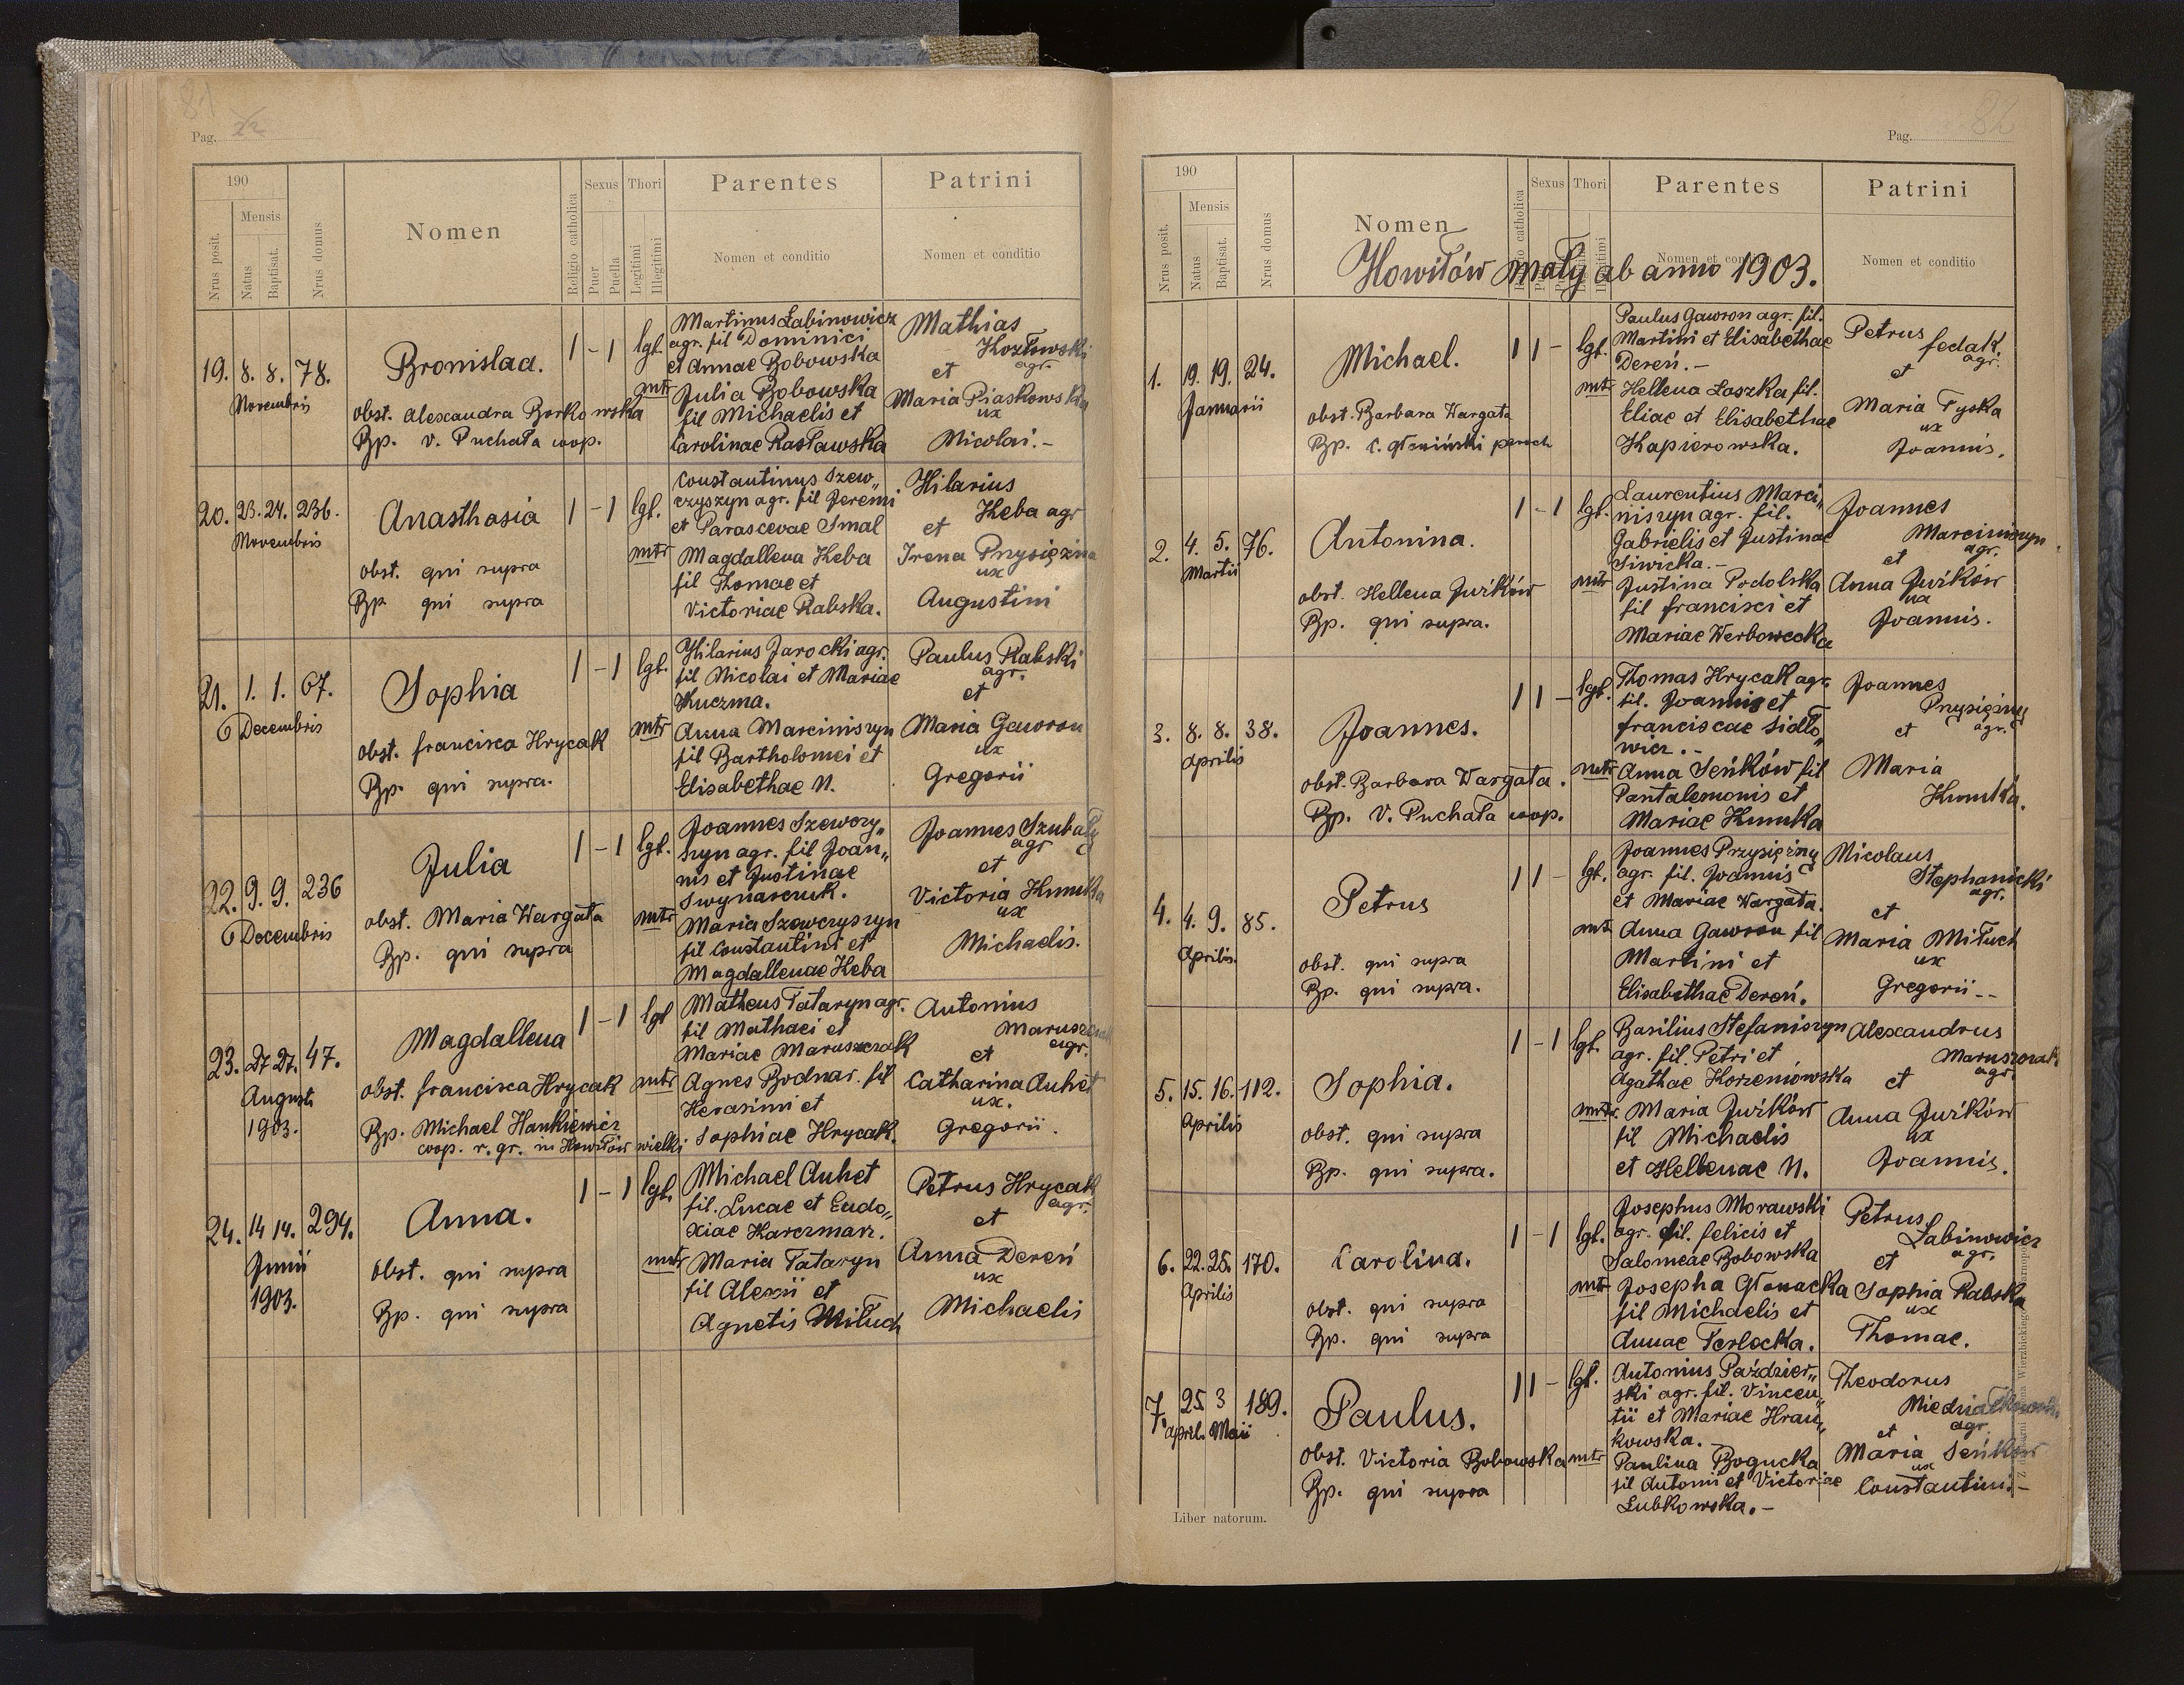 81
Pag.
190
Nrus posit.
Mensis
Natus
Baptisat.
Nrus domus
Nomen
Religio catholica
Sexus
Puer
Puella
Thori
Legitimi
Illegitimi
Parentes
Nomen et conditio
Patrini
Nomen et conditio
19. 8. 8. 78.
Novembris
Bronislaa.
obst. Alexandra Borkowska
Bp. V. Puchała coop.
1 - 1 lgt.
Martinus Łabinowicz
agr. fil Dominici
et Annae Bobowska
mtr Julia Bobowska
fil Michaelis et
Carolinae Rasławska
Mathias
Kozłowski
agr.
et
Maria Piaskowska
ux
Nicolai.-
20. 23. 24. 236.
Novembris
Anasthasia
obst. qui supra
Bp qui supra
1 - 1 lgt.
Constantinus Szew„
czyszyn agr. fil Jeremi
et Parascevae Smal
mtr Magdallena Heba
fil Thomae et
Victoriae Rabska.
Hilarius
Heba agr
et
Irena Przysiężna
ux
Augustini
21. 1. 1. 67.
Decembris
Sophia
obst. francisca Hrycak
Bp. qui supra.
1 - 1 lgt.
Hilarius Jarocki agr.
fil Nicolai et Mariae
Kuczma.
mtr Anna Marciniszyn
fil Bartholomei et
Elisabethae N.
Paulus Rabski
agr.
et
Maria Gawron
ux
Gregorii
22. 9. 9. 236
Decembris
Julia
obst. Maria Wargata
Bp. qui supra
1 - 1 lgt.
Joannes Szewczy„
szyn agr. fil Joan„
nis et Justinae
Swynarczuk.
mtr Maria Szewczyszyn
fil Constantini et
Magdallenae Heba
Joannes Szubały
agr
et
Victoria Kmuka
ux
Michaelis.
23. 27 27. 47.
Augusti
1903.
Magdallena
obst. francisca Hrycak
Bp. Michael Hankiewicz
coop. r. gr. in Howiłów wielki
1 - 1 lgt
Matheus Tataryn agr.
fil Mathaei et
Mariae Maruszczak
mtr Agnes Bodnar. fil
Herasimi et
Sophiae Hrycak.
Antonius
agr.
et
Catharina Auhet
ux.
Gregorii.
24. 14 14. 294.
Junii
1903.
Anna.
obst. qui supra
Bp. qui supra
1 - 1 lgt.
Michael Auhet
fil. Lucae et Eudo„
xiae Karczmarz.
mtr Maria Tataryn
fil Alexii et
Agnetis Miłuch
Petrus Hrycak
agr.
et
Anna Dereń
ux
Michaelis
82
Pag.
190
Nrus posit.
Mensis
Natus
Baptisat.
Nrus domus
Nomen
Religio catholica
Sexus
Thori
Parentes
Nomen et conditio
Patrini
Nomen et conditio
Howiłów mały ab anno 1903.
1. 19. 19. 24.
Januarii
Michael.
obst. Barbara Wargata
Bp. C. Głowiński paroch
1 1 - lgt.
Paulus Gawron agr. fil.
Martini et Elisabethae
Dereń.-
mtr Hellena Łaszka fil.
Eliae et Elisabethae
Kapierowska.
Petrus
fedak.
agr.
et
Maria Tyska
ux
Joannis.
2. 4. 5. 76.
Martii
Antonina.
obst. Hellena Jurków
Bp. qui supra.
1 - 1 lgt.
Laurentius Marci„
niszyn agr. fil.
Gabrielis et Justinae
Siwicka.-
mtr Justina Podolska
fil francisci et
Mariae Werbowecka
Joannes
Marciniszyn
agr.
et
Anna Jurków
ux
Joannis.
3. 8. 8. 38.
Aprilis
Joannes.
obst. Barbara Wargata.
Bp. V. Puchała coop.
1 1 - lgt.
Thomas Hrycak agr.
fil. Joannis et
franciscae Sidło„
wicz.-
mtr Anna Seńków fil
Pantalemonis et
Mariae Kmuka
Joannes
Przysiężny
agr.
et
Maria
Kmuka.
4. 4. 9. 85.
Aprilis.
Petrus
obst. qui supra
Bp. qui supra.
1 1 - lgt.
Joannes Przysiężny
agr. fil. Joannis
et Mariae Wargata.
mtr Anna Gawron fil
Martini et
Elisabethae Dereń.
Nicolaus
Stephanicki
agr.
et
Maria Miłuch
ux
Gregorii--
5. 15. 16. 112.
Aprilis
Sophia.
obst. qui supra
Bp. qui supra.
1 - 1 lgt.
Basilius Stefaniszyn
agr. fil. Petri et
Agathae Korzeniowska
mtr. Maria Jurków
fil Michaelis
et Hellenae N.
Alexandrus
Maruszczak
agr.
et
Anna Jurków
ux
Joannis.
6. 22. 25. 170.
Aprilis
Carolina.
obst. qui supra
Bp. qui supra
1 - 1 lgt.
Josephus Morawski
agr. fil. felicis et
Salomeae Bobowska
mtr Josepha Głowacka
fil Michaelis et
Annae Terlecka.
Petrus
Łabinowicz
agr.
et
Sophia Rabska
ux
Thomae.
7. 25 3 189.
April. Maii
Paulus.
obst. Victoria Bobowska
Bp. qui supra
1 1 - lgt.
Antonius Paździer„
ski agr. fil. Vincen„
tii et Mariae Hran„
kowska.-
mtr Paulina Bogucka
fil Antonii et Victoriae
Lubkowska.-
Theodorus
agr.
et
Maria Seńków
ux
Constantini.-
Liber natorum.